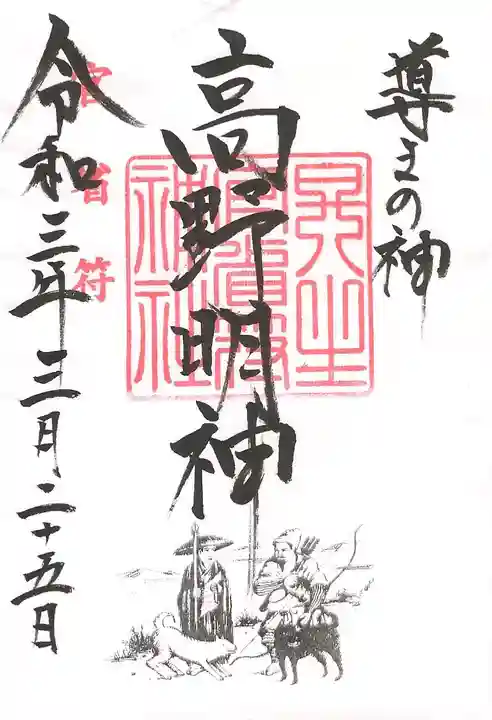 導きの神
高野明神
令和三年三月二十五日
官省符
丹生官省符神社